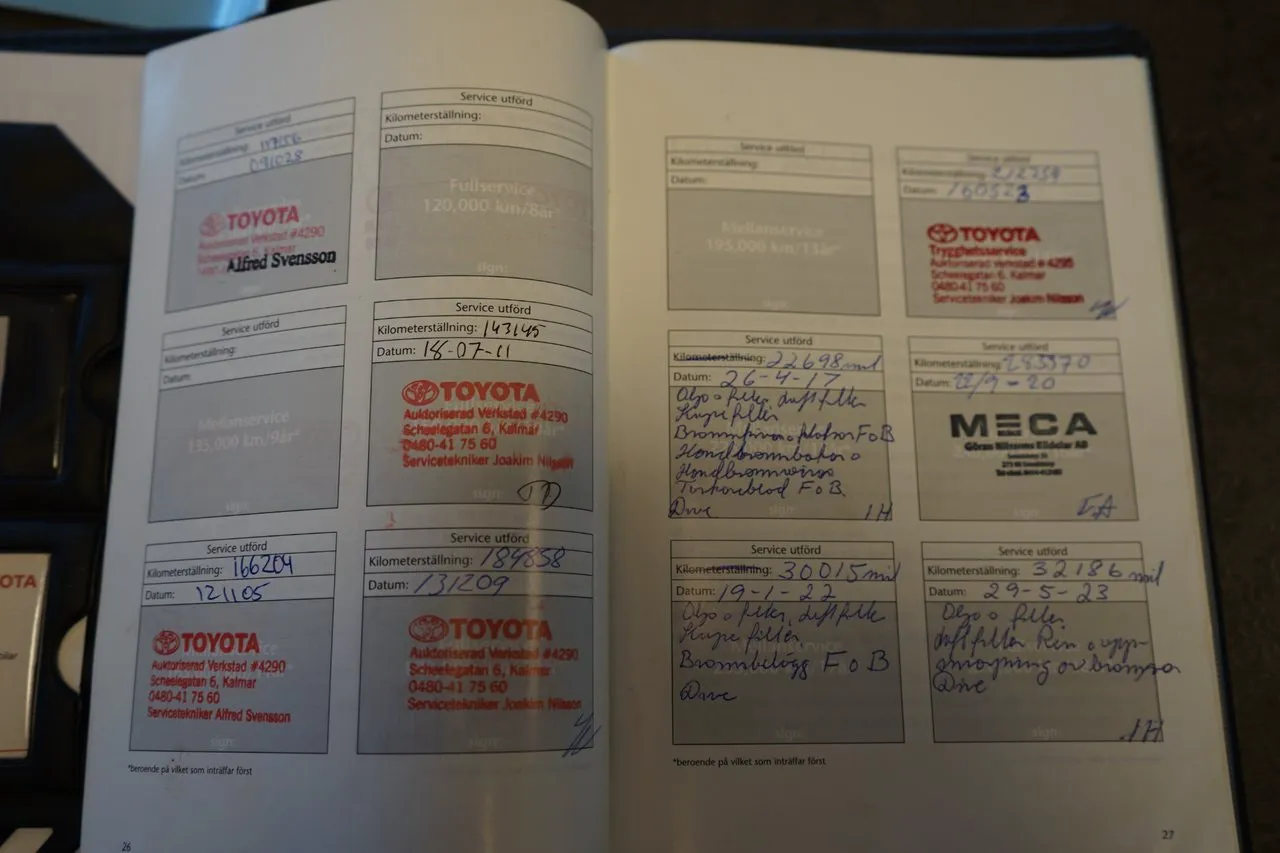 Service utförd
Kilometerställning:
091028
Datum:
TOYOTA
Auktoriserad Verkstad #4290
Scheelegatan 6, Kalmar
Alfred Svensson
sign:
Service utförd
Kilometerställning:
Datum:
Fullservice
120,000 km/8år*
sign:
Service utförd
Kilometerställning:
Datum:
Mellanservice
135,000 km/9år*
sign:
Service utförd
Kilometerställning: 143145
Datum: 18-07-11
TOYOTA
Auktoriserad Verkstad #4290
Scheelegatan 6, Kalmar
0480-41 75 60
Servicetekniker Joakim Nilsson
sign:
Service utförd
Kilometerställning: 166204
Datum: 121105
TOYOTA
Auktoriserad Verkstad #4290
Scheelegatan 6, Kalmar
0480-41 75 60
Servicetekniker Alfred Svensson
sign:
Service utförd
Kilometerställning: 184858
Datum: 131209
TOYOTA
Auktoriserad Verkstad #4290
Scheelegatan 6, Kalmar
0480-41 75 60
Servicetekniker Joakim Nilsson
*beroende på vilket som inträffar först
26
Service utförd
Kilometerställning:
Datum:
Mellanservice
195,000 km/13år*
sign:
Service utförd
Kilometerställning: 212759
Datum: 160523
TOYOTA
Trygghetsservice
Auktoriserad Verkstad #4290
Scheelegatan 6, Kalmar
0480-41 75 60
Servicetekniker Joakim Nilsson
Service utförd
Kilometerställning: 22698 mil
Datum: 26-4-17
Oljo o filter, Luftfilter
Kupefilter
F o B
Torkarblad F o B.
sign:
IH
Service utförd
Kilometerställning: 283370
Datum: 22/9-20
MECA
Göran Nilssons Bildelar AB
sign:
Service utförd
Kilometerställning: 30015 mil
Datum: 19-1-22
Oljo o filter, Luftfilter
Kupefilter
Bromsbelägg F o B
sign:
Service utförd
Kilometerställning: 32186 mil
Datum: 29-5-23
Oljo o filter
Luftfilter Ren o upp-
smörjning av bromsar
sign:
IH
*beroende på vilket som inträffar först
27
OTA